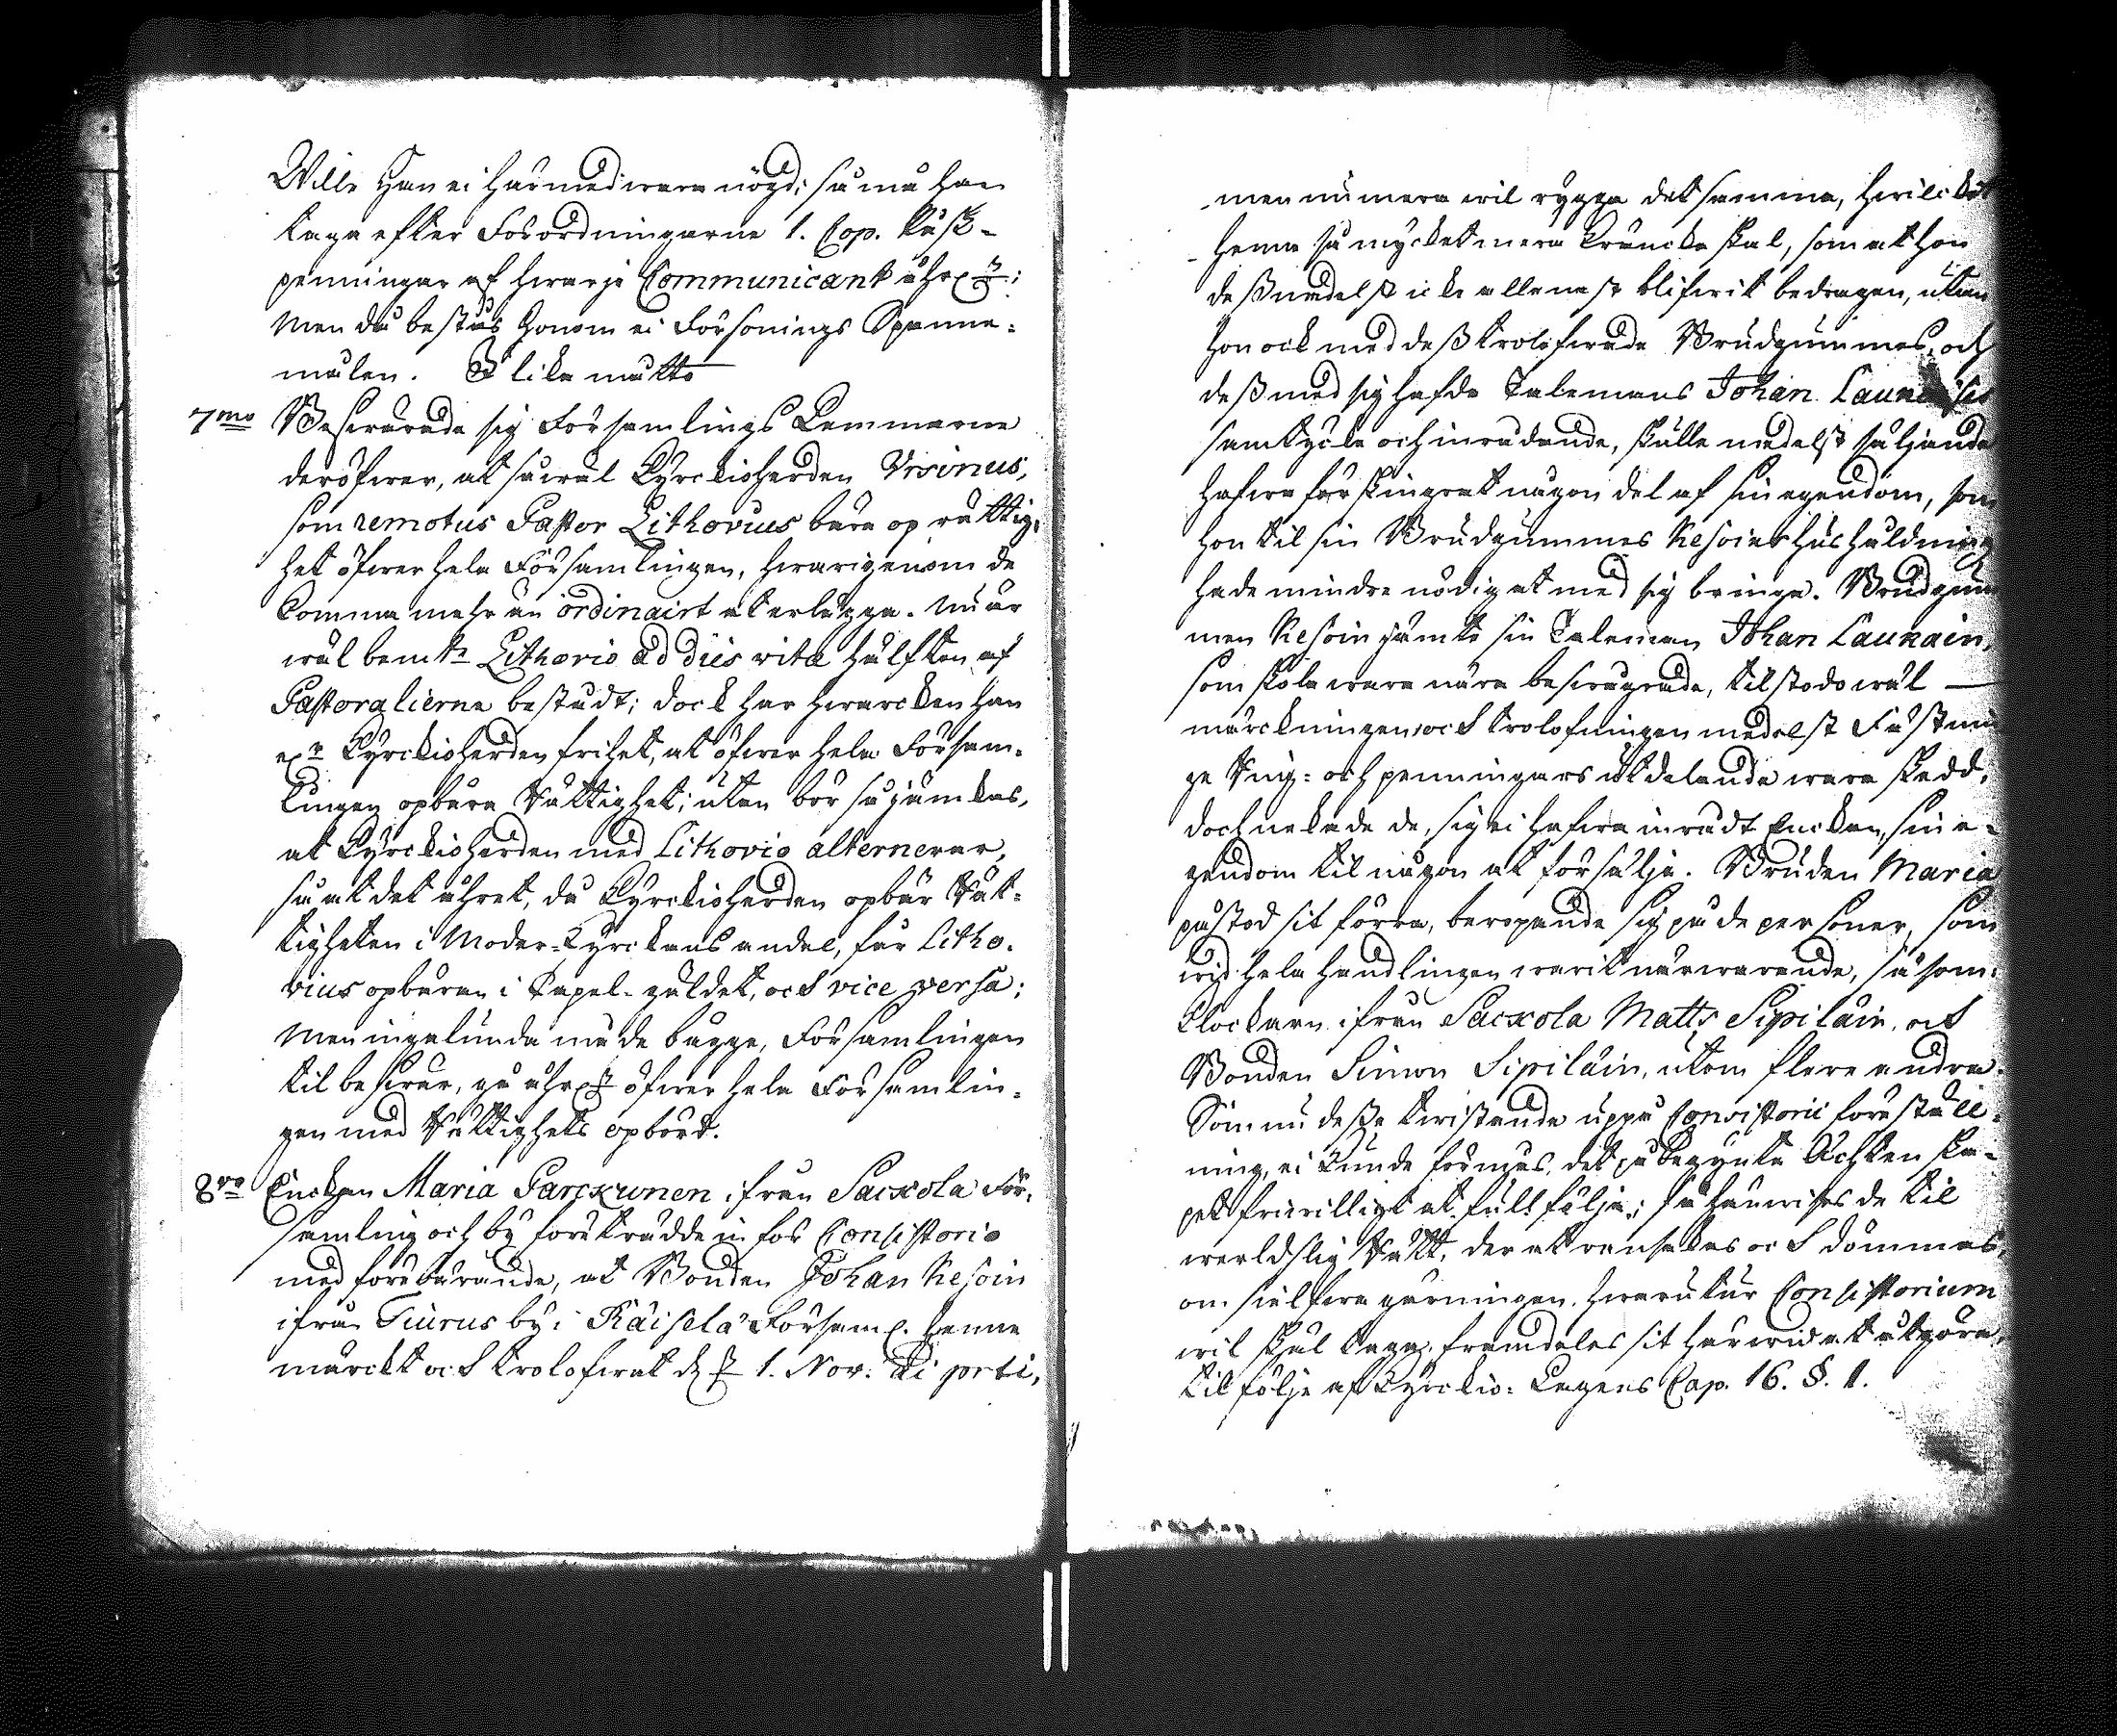 Wille Han ei härmed wara nögd; så må han
taga efter Förordningarne 1. Cop. Påsk-
penningar af hwarje Communicant åhrl.n;
Men då bestås honom ei Försonings Spanne-
målen. I lika mätto
7mo Beswärade sig Församlings Lemmarne
deröfwer, at såwäl Kyrckioherden Ursinus,
som remotus Pastor Lithovius bära op rättig-
het öfwer hela Församlingen, hwarigenom de
komma mehr än ordinairt at erlägga. Nu är
wäl bemte Lithovio ad dies vitæ hälften af
Pastoralierna bestådt; dock har hwarcken han
el.r Kyrckioherden frihet, at öfwer hela Försam-
lingen opbära Rättighet; utan bör så jämkas,
at Kyrckioherden med Lithovio alternerar,
så at det åhret, då Kyrckioherden opbär Rät-
tigheten i Moder-Kyrckans andel, får Litho-
vius opbäran i Capel-gäldet, och vice versa;
Men ingalunda må de bägge, Församlingen
til beswär, gå åhrl.n öfwer hela Församlin-
gen med Rättighets opbörd.
8vo Enckan Maria Parckunen ifrån Sackola För-
samling och by företrädde in för Consistorio
med förebärande, at Bonden Johan Kesoin
ifrån Tiurus by i Räisälä Församl. henne
märckt och trolofwat d. 1. Nov. Ai prti,
men numera wil rygga det samma, hwilcket
henne så mycket mera kräncka skal, som at hon
dessmedelst icke allenast blifwit bedragen, utan
hon ock med dess trolofwade Brudgummes, och
dess med sig hafde Talemans Johan Launaises
samtycke och inrådande, skulle medelst säljande
hafwa förskingrat någon del af sin egendom, som
hon til sin Brudgummes Kesoins hushåldning
hade mindre nödig at med sig bringa. Brudgum
men Kesoin jämte sin Taleman Johan Launain,
som skola wara nära beswägrade, tilstodo wäl —
märckningen och trolofningen medelst Fästnin
ge Ring- och penningars utdelande wara skedd,
doch nekade de, sig ei hafwa inrådt Enckan, sin e-
gendom til någon at försälja. Bruden Maria
påstod sit förra, beropande sig på de personer, som
wid hela handlingen warit närwarande, såsom:
Klockaren ifrån Sackola Matts Sipiläin, och
Bonden Simon Sipiläin, utom flere andra.
Som nu desse twistande uppå Consistorii föreställ-
ning, ei kunde förmås, det påbegynta Ächtenska-
pet friwilligt at fullfölja; så hänwises de til
werldslig Rätt, der at ransakas och dömmas,
om sielfwa gärningen, hwaruttur Consistorium
wil skal taga, framdeles sit härwid at utgöra,
til följe af Kyrckio-Lagens Cap. 16. §. 1.